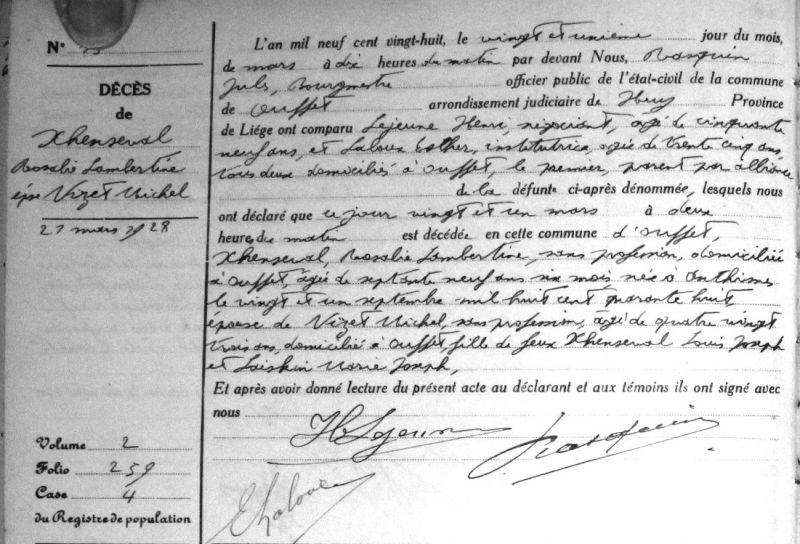 N°
DÉCÈS
de
Xhenseval
Rosalie Lambertine
épse Vizet Michel
21 mars 1928
Volume 2
Folio 259
Case 4
du Registre de population
L'an mil neuf cent vingt-huit, le vingt et unième jour du mois,
de mars à dix heures du matin par devant Nous, Rasquin
Jules, Bourgmestre officier public de l'état-civil de la commune
de Ouffet arrondissement judiciaire de Huy Province
de Liége ont comparu Lejeune Henri, négociant, agé de cinquante
neuf ans, et Laloux Esther, institutrice, agée de trente cinq ans
tous deux domiciliés à Ouffet, le premier, parent par alliance
de la défunte ci-après dénommée, lesquels nous
ont déclaré que ce jour vingt et un mars à deux
heures du matin est décédée en cette commune d'Ouffet,
Xhenseval, Rosalie Lambertine, sans profession, domiciliée
à Ouffet, agée de septante neuf ans six mois née à Anthisnes
le vingt et un septembre mil huit cent quarante huit,
épouse de Vizet Michel, sans profession, agé de quatre vingt
trois ans, domicilié à Ouffet, fille de feux Xhenseval Louis Joseph
et Marie Joseph,
Et après avoir donné lecture du présent acte au déclarant et aux témoins ils ont signé avec
nous
H Lejeune
Rasquin
E Laloux